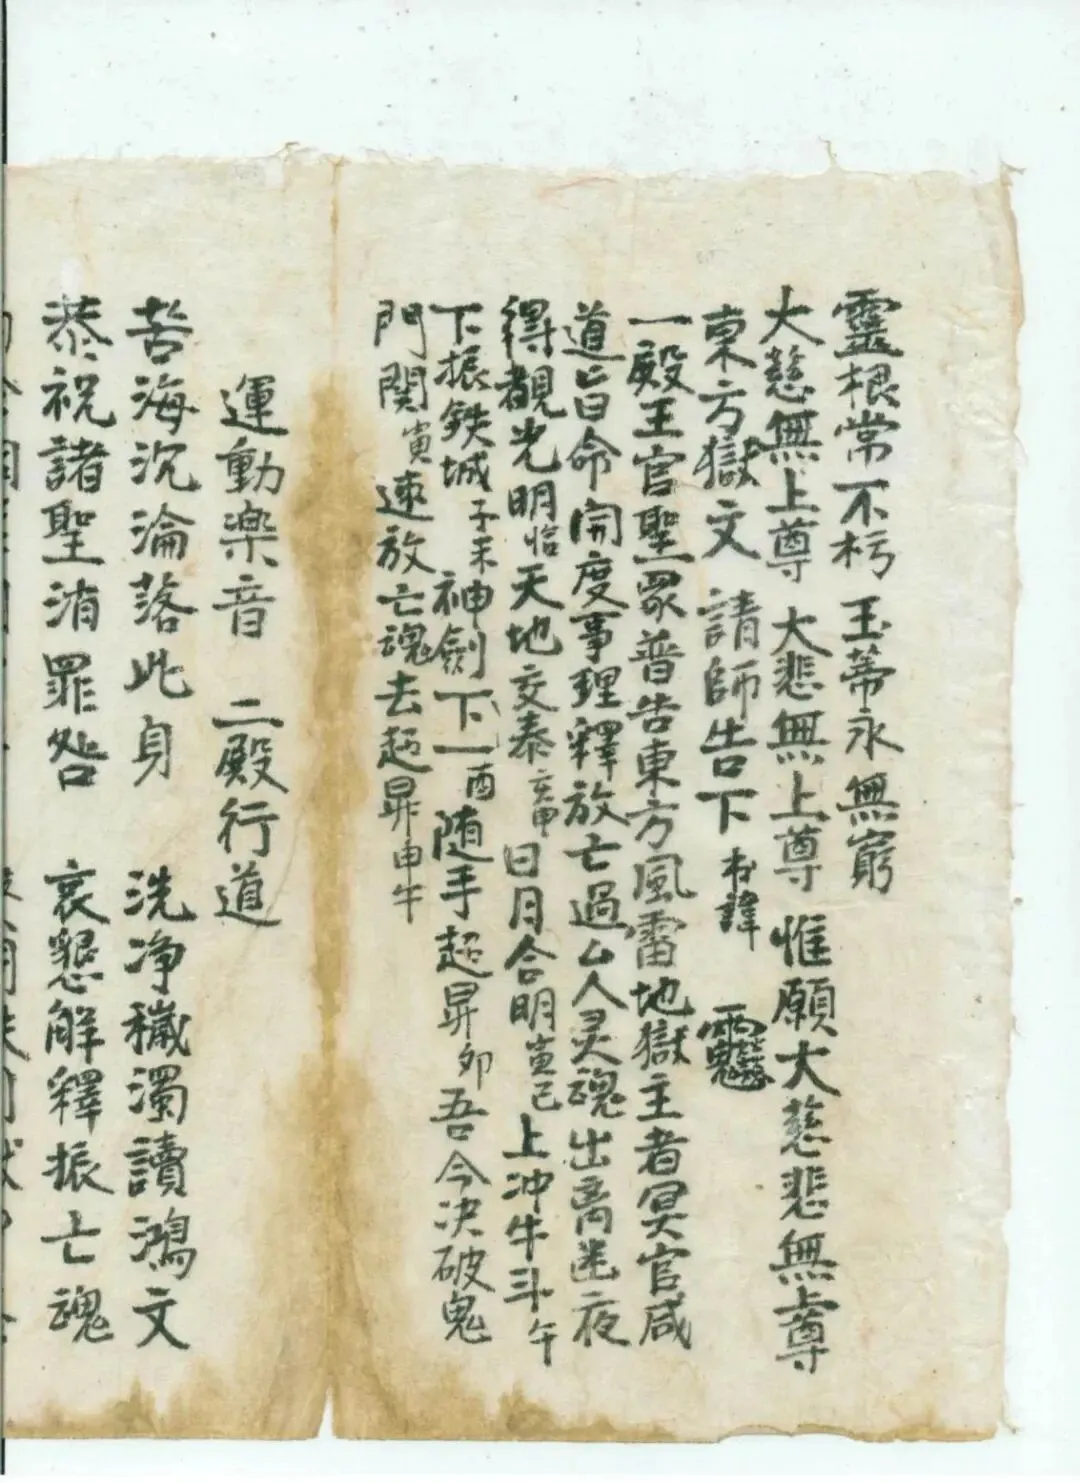 靈根常不朽 玉蒂永無窮
大慈無上尊 大悲無上尊 惟願大慈悲無上尊
東方獄文 請師告下 本諱
一殿王官聖眾普告東方風雷地獄主者冥官咸
道旨命開度事理釋放亡過△人灵魂出离幽夜
得覩光明 天地交泰亥申日月合明寅巳上冲牛斗午
下振鉄城子未神劍下一酉随手超昇夘吾今决破鬼
門関寅速放亡魂去超昇申午
運動楽音 二殿行道
苦海沉淪落此身 洗净穢濁讀鴻文
恭祝諸聖消罪咎 哀懇解釋振亡魂